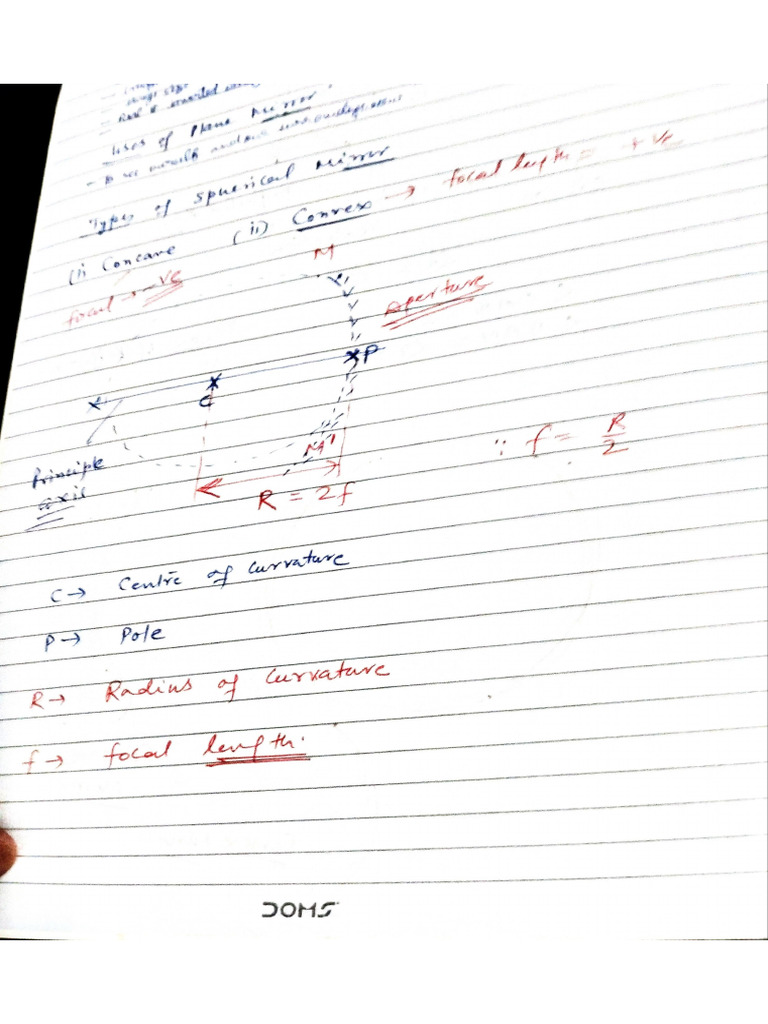 Uses of Plane Mirror
Types of Spherical Mirror
(i) Concave (ii) Convex → focal length = +ve
focal → -ve
M
Aperture
P
C
M'
Principle
axis
R = 2f
∵ f = R/2
C → Centre of curvature
P → Pole
R → Radius of curvature
f → focal length.
DOMS